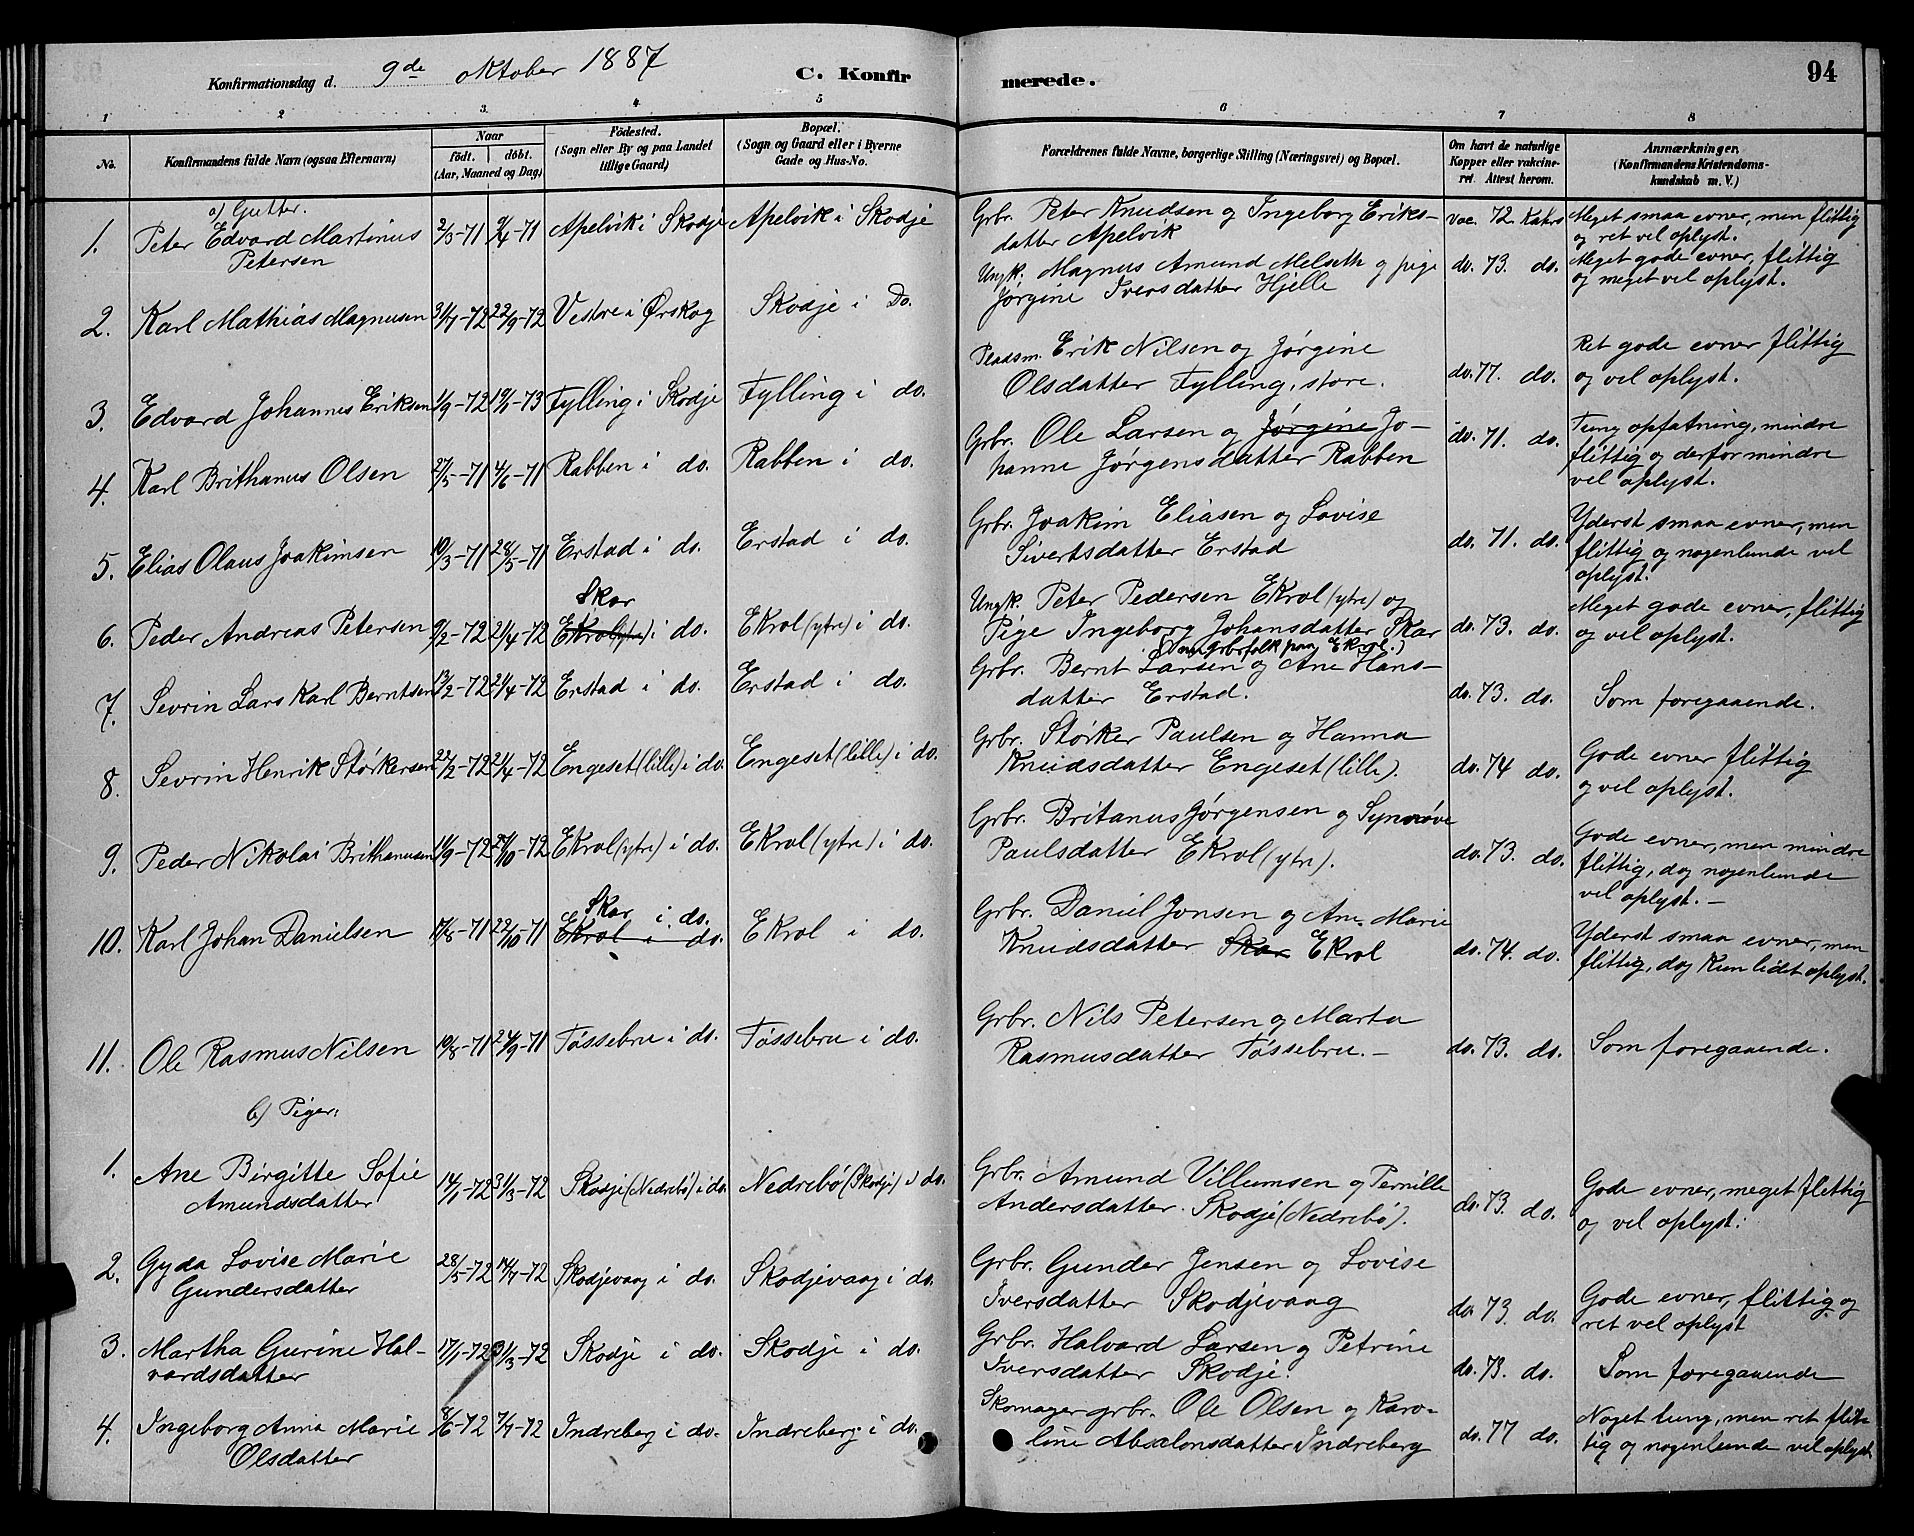 Konfirmationsdag d. 9de oktober 1887 C. Konfirmerede. 94
1 2 3. 4. 5 6 7 8
No. Konfirmandens fulde Navn (ogsaa Efternavn) Naar födt. döbt. (Aar, Maaned og Dag) Födested. (Sogn eller By og paa Landet tillige Gaard) Bopæl. (Sogn og Gaard eller i Byerne Gade og Hus-No. Forældrenes fulde Navne, borgerlige Stilling (Næringsvei) og Bopæl. Om havt de naturlige Kopper eller vakcineret. Attest herom. Anmærkninger. (Konfirmandens Kristendomskundskab m. V.)
a) Gutter.
1. Peter Edvard Martinus Petersen 2/3-71 9/4-71 Apelvik i Skodje Apelvik i Skodje
Grbr. Peter Knudsen og Ingeborg Eriks-
datter Apelvik
vac. 72 Kahrs
Meget smaa evner, men flittig
og ret vel oplyst.
2. Karl Mathias Magnusen 31/7-72 22/9-72 Vestre i Ørskog Skodje i Do.
Ungk. Magnus Amund Melseth og pige
Jørgine Iversdatter Hjelle
do. 73. do.
Meget gode evner, flittig
og meget vel oplyst.
3. Edvard Johannes Eriksen 1/9-72 19/1-73 Fylling i Skodje Fylling i do.
Pladsm. Erik Nilsen og Jørgine
Olsdatter Fylling, store.
do. 77. do.
Ret gode evner flittig
og vel oplyst.
4. Karl Brithanus Olsen 27/5-71 4/6-71 Rabben i do. Rabben i do.
Grbr. Ole Larsen og Jørgine Jo-
hanne Jørgensdatter Rabben
do. 71. do.
Tung opfatning, mindre
flittig og derfor mindre
vel oplyst.
5. Elias Olaus Joakimsen 19/3-71 28/5-71 Erstad i do. Erstad i do.
Grbr. Joakim Eliasen og Lovise
Sivertsdatter Erstad
do. 71. do.
Yderst smaa evner, men
flittig og nogenlunde vel
oplyst.
6. Peder Andreas Petersen 9/2-72 21/4-72 Skar Ekrol (ytre) i do. Ekrol (ytre) i do.
Ungk. Peter Pedersen Ekrol (ytre) og
Pige Ingeborg Johansdatter Skar
(nu Grbrfolk paa Ekrol.)
do. 73. do.
Meget gode evner, flittig
og vel oplyst.
7. Sevrin Lars Karl Berntsen 13/2-72 21/4-72 Erstad i do. Erstad i do.
Grbr. Bernt Larsen og Ane Hans-
datter Erstad.
do. 73. do.
Som foregaaende.
8. Sevrin Henrik Størkersen 22/2-72 21/4-72 Engeset (lille) i do. Engeset (lille) i do.
Grbr. Størker Paulsen og Hanna
Knudsdatter Engeset (lille).
do. 74 do.
Gode evner flittig
og vel oplyst.
9. Peder Nikolai Brithanusen 11/9-72 27/10-72 Ekrol (ytre) i do. Ekrol (ytre) i do.
Grbr. Britanus Jørgensen og Synnøve
Paulsdatter Ekrol (ytre).
do. 73. do.
Gode evner, men mindre
flittig, dog nogenlunde
vel oplyst. –
10. Karl Johan Danielsen 17/8-71 22/10-71 Skar i do. Ekrol i do. Ekrol i do.
Grbr. Daniel Jonsen og Ane Marie
Knudsdatter Skar Ekrol
do. 74. do.
Yderst smaa evner, men
flittig, dog kun lidet oplyst.
11. Ole Rasmus Nilsen 19/8-71 24/9-71 Føssebru i do. Føssebru i do.
Grbr. Nils Petersen og Marta
Rasmusdatter Føssebru. –
do. 73. do.
Som foregaaende.
b) Piger:
1. Ane Birgitte Sofie Amundsdatter 14/1-72 31/3-72 Skodje (Nedrebö) i do. Nedrebö (Skodje) i do.
Grbr. Amund Villumsen og Pernille
Andersdatter Skodje (Nedrebö).
do. 73. do.
Gode evner, meget flittig
og vel oplyst.
2. Gyda Lovise Marie Gundersdatter 28/5-72 14/7-72 Skodjevaag i do. Skodjevaag i do.
Grbr. Gunder Jensen og Lovise
Iversdatter Skodjevaag
do. 73. do.
Gode evner, flittig og
ret vel oplyst
3. Martha Gurine Hal-
vardsdatter 17/1-72 31/3-72 Skodje i do. Skodje i do.
Grbr. Halvard Larsen og Petrine
Iversdatter Skodje.
do. 73. do.
Som foregaaende
4. Ingeborg Anna Marie Olsdatter 8/6-72 7/7-72 Indreberg i do. Indreberg i do.
Skomager grbr. Ole Olsen og Karo-
line Absalonsdatter Indreberg
do. 77 do.
Noget tung, men ret flit-
tig og nogenlunde vel oplyst